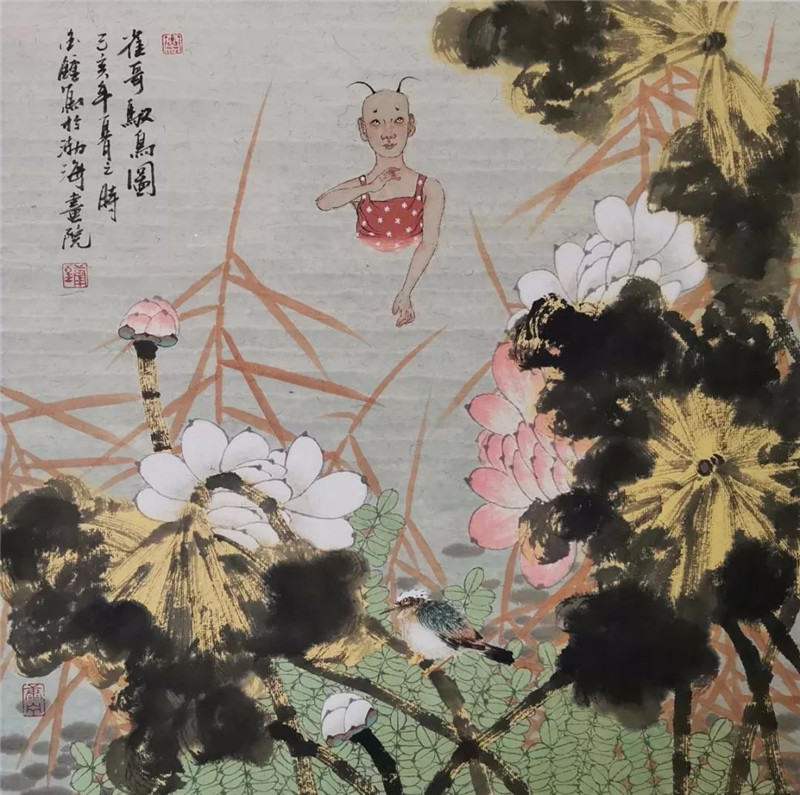 雀哥馭鳥圖
己亥年夏之時
金鐘寫於渤海畫院